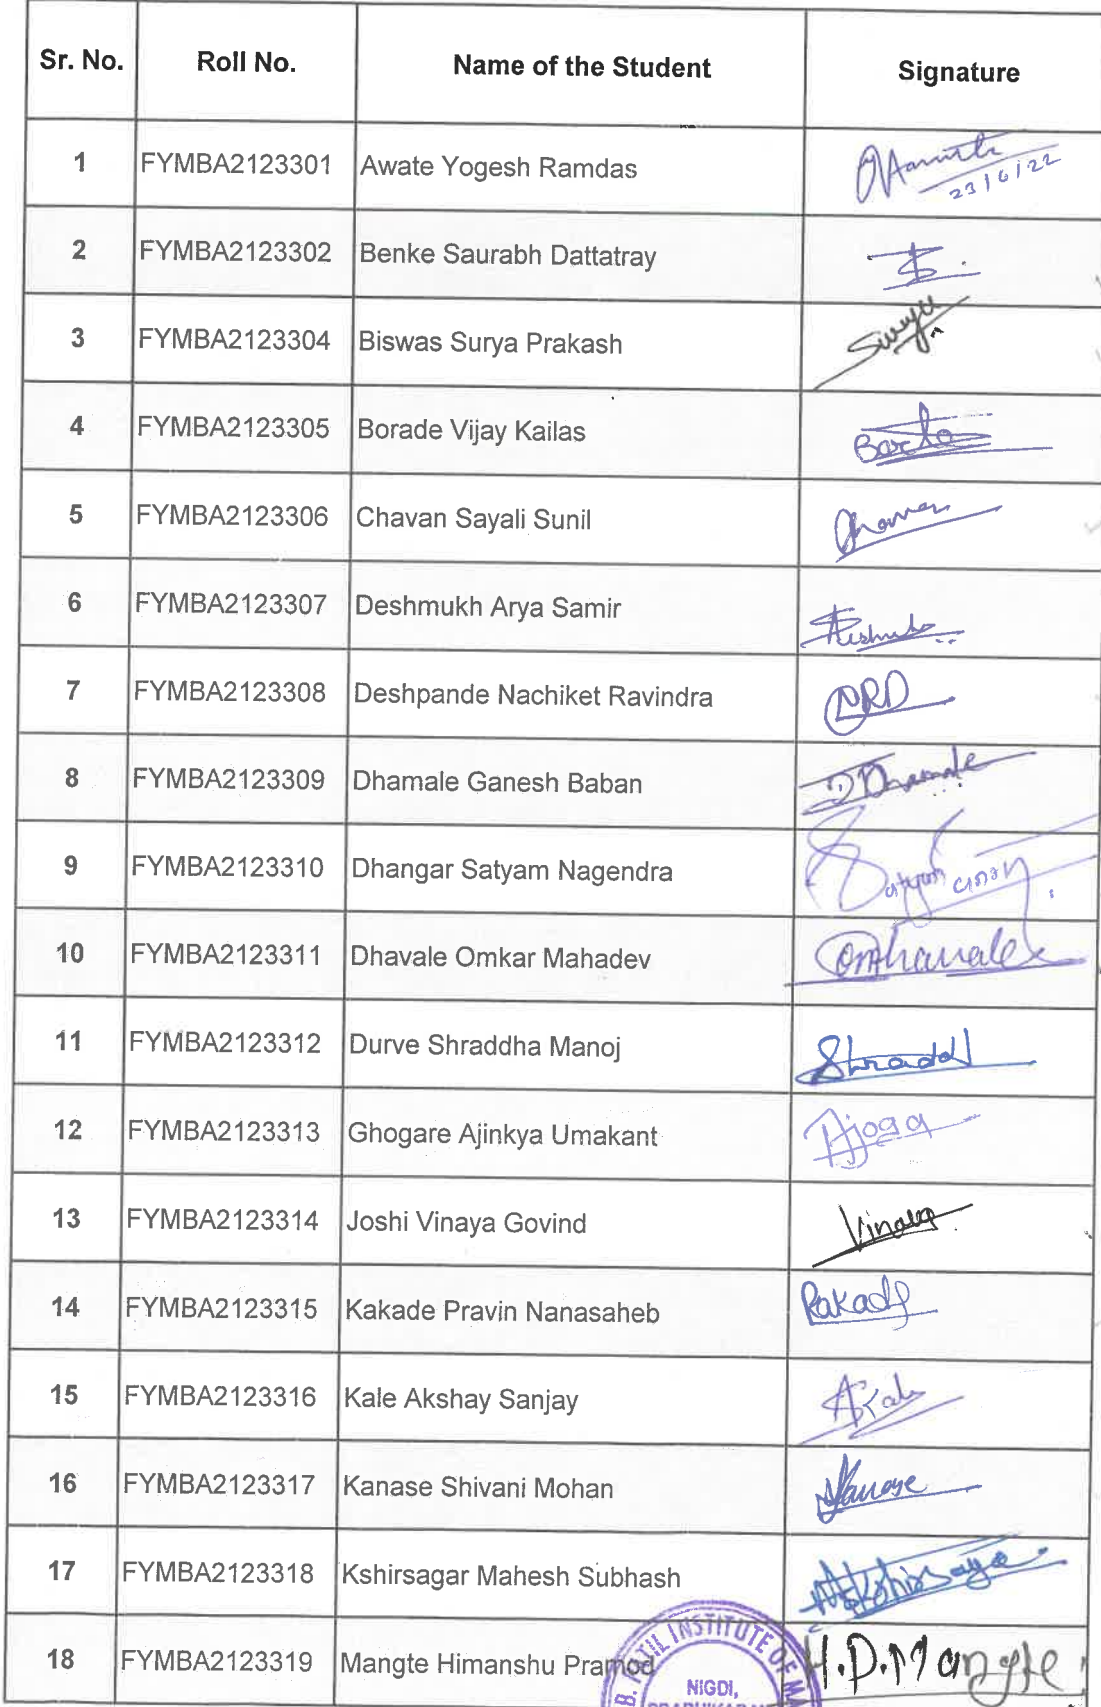 Sr. No. Roll No. Name of the Student Signature
1 FYMBA2123301 Awate Yogesh Ramdas
23/6/22
2 FYMBA2123302 Benke Saurabh Dattatray
3 FYMBA2123304 Biswas Surya Prakash Surya
4 FYMBA2123305 Borade Vijay Kailas
5 FYMBA2123306 Chavan Sayali Sunil
6 FYMBA2123307 Deshmukh Arya Samir
7 FYMBA2123308 Deshpande Nachiket Ravindra NRD
8 FYMBA2123309 Dhamale Ganesh Baban Dhamale
9 FYMBA2123310 Dhangar Satyam Nagendra Satyam
10 FYMBA2123311 Dhavale Omkar Mahadev
11 FYMBA2123312 Durve Shraddha Manoj
12 FYMBA2123313 Ghogare Ajinkya Umakant
13 FYMBA2123314 Joshi Vinaya Govind Vinaya
14 FYMBA2123315 Kakade Pravin Nanasaheb
15 FYMBA2123316 Kale Akshay Sanjay
16 FYMBA2123317 Kanase Shivani Mohan
17 FYMBA2123318 Kshirsagar Mahesh Subhash
18 FYMBA2123319 Mangte Himanshu Pramod H.D.Mangte
B. PATIL INSTITUTE OF MA
NIGDI,